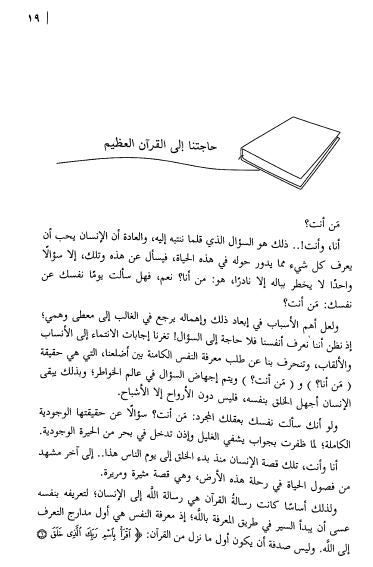 ١٩
حاجتنا إلى القرآن العظيم
مَن أنت؟
أنا، وأنت!.. ذلك هو السؤال الذي قلما ننتبه إليه، والعادة أن الإنسان يحب أن
يعرف كل شيء مما يدور حوله في هذه الحياة، فيسأل عن هذه وتلك، إلا سؤالًا
واحدًا لا يخطر بباله إلا نادرًا، هو: من أنا؟ نعم، فهل سألت يومًا نفسك عن
نفسك: مَن أنت؟
ولعل أهم الأسباب في إبعاد ذلك وإهماله يرجع في الغالب إلى معطى وهمي؛
إذ نظن أننا نعرف أنفسنا فلا حاجة إلى السؤال! تغرنا إجابات الانتماء إلى الأنساب
والألقاب، وتنحرف بنا عن طلب معرفة النفس الكامنة بين أضلعنا، التي هي حقيقة
( مَن أنا؟ ) و ( مَن أنت؟ ) ويتم إجهاض السؤال في عالم الخواطر؛ وبذلك يبقى
الإنسان أجهل الخلق بنفسه، فليس دون الأرواح إلا الأشباح.
ولو أنك سألت نفسك بعقلك المجرد: مَن أنت؟ سؤالًا عن حقيقتها الوجودية
الكاملة؛ لما ظفرت بجواب يشفي الغليل وإذن تدخل في بحر من الحيرة الوجودية.
أنا وأنت، تلك قصة الإنسان منذ بدء الخلق إلى يوم الناس هذا.. إلى آخر مشهد
من فصول الحياة في رحلة هذه الأرض، وهي قصة مثيرة ومريرة.
ولذلك أساسًا كانت رسالةُ القرآن هي رسالة اللَّه إلى الإنسان؛ لتعريفه بنفسه
عسى أن يبدأ السير في طريق المعرفة باللَّه؛ إذ معرفة النفس هي أول مدارج التعرف
إلى اللَّه. وليس صدفة أن يكون أول ما نزل من القرآن: ﴿ ٱقْرَأْ بِٱسْمِ رَبِّكَ ٱلَّذِى خَلَقَ ۝